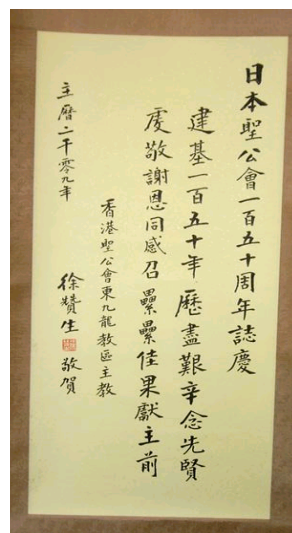 日本聖公會一百五十周年誌慶
建基一百五十年歷盡艱辛念先賢
虔敬謝恩同感召纍纍佳果獻主前
香港聖公會東九龍教區主教
徐贊生敬賀
主曆二千零九年